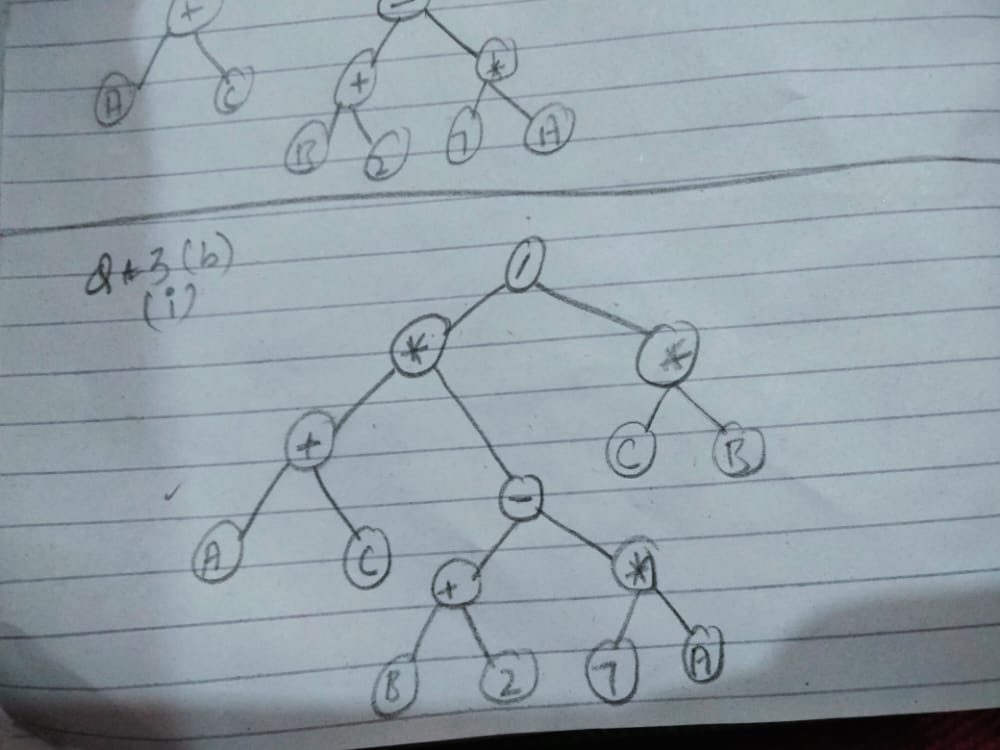 + -
A C + *
B 2 7 A
Q*3 (b)
(i)
/
* *
+ C B
-
A C + *
B 2 7 A